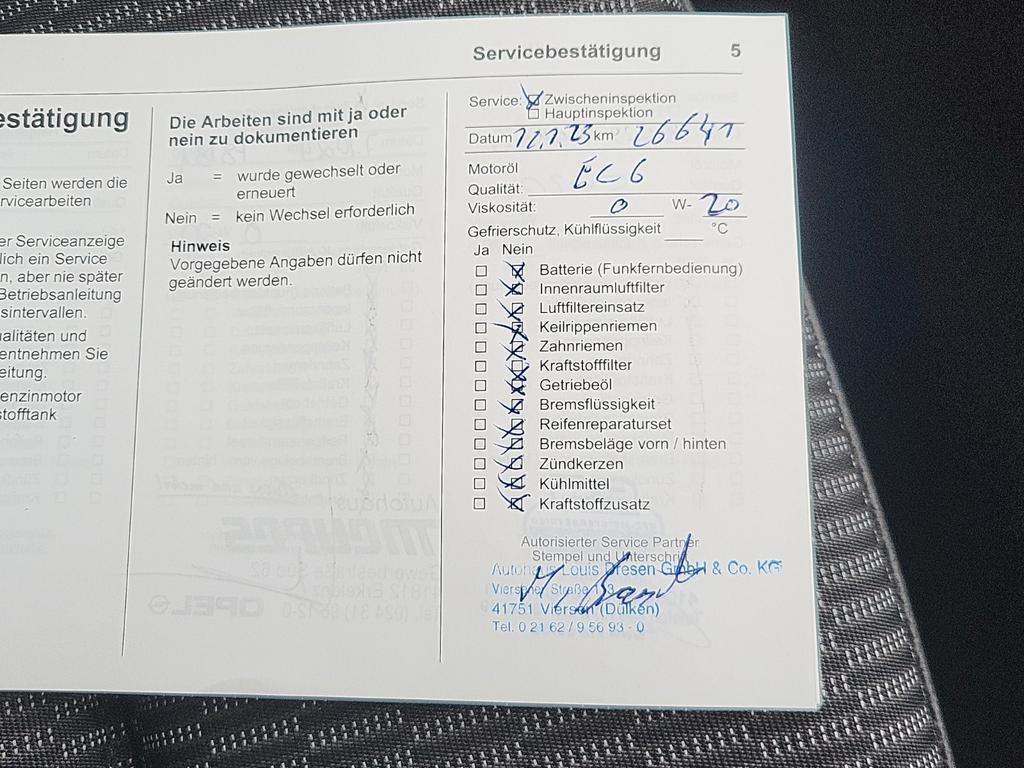 Servicebestätigung 5
estätigung
Seiten werden die
rvicearbeiten
er Serviceanzeige
lich ein Service
n, aber nie später
Betriebsanleitung
sintervallen.
ualitäten und
entnehmen Sie
eitung.
enzinmotor
stofftank
Die Arbeiten sind mit ja oder
nein zu dokumentieren
Ja = wurde gewechselt oder
erneuert
Nein = kein Wechsel erforderlich
Hinweis
Vorgegebene Angaben dürfen nicht
geändert werden.
Service: Zwischeninspektion
Hauptinspektion
Datum 12.1.23 km 26641
Motoröl
Qualität: EC6
Viskosität: 0 W- 20
Gefrierschutz, Kühlflüssigkeit °C
Ja Nein
Batterie (Funkfernbedienung)
Innenraumluftfilter
Luftfiltereinsatz
Keilrippenriemen
Zahnriemen
Kraftstofffilter
Getriebeöl
Bremsflüssigkeit
Reifenreparaturset
Bremsbeläge vorn / hinten
Zündkerzen
Kühlmittel
Kraftstoffzusatz
Autorisierter Service Partner
Stempel und Unterschrift
Autohaus Louis Dresen GmbH & Co. KG
Viersener Straße
41751 Viersen (Dülken)
Tel. 0 21 62 / 9 56 93 - 0